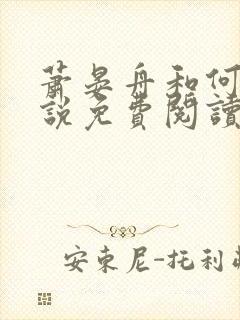 蕭晏舟和何
說免費閱讀
安東尼-托利